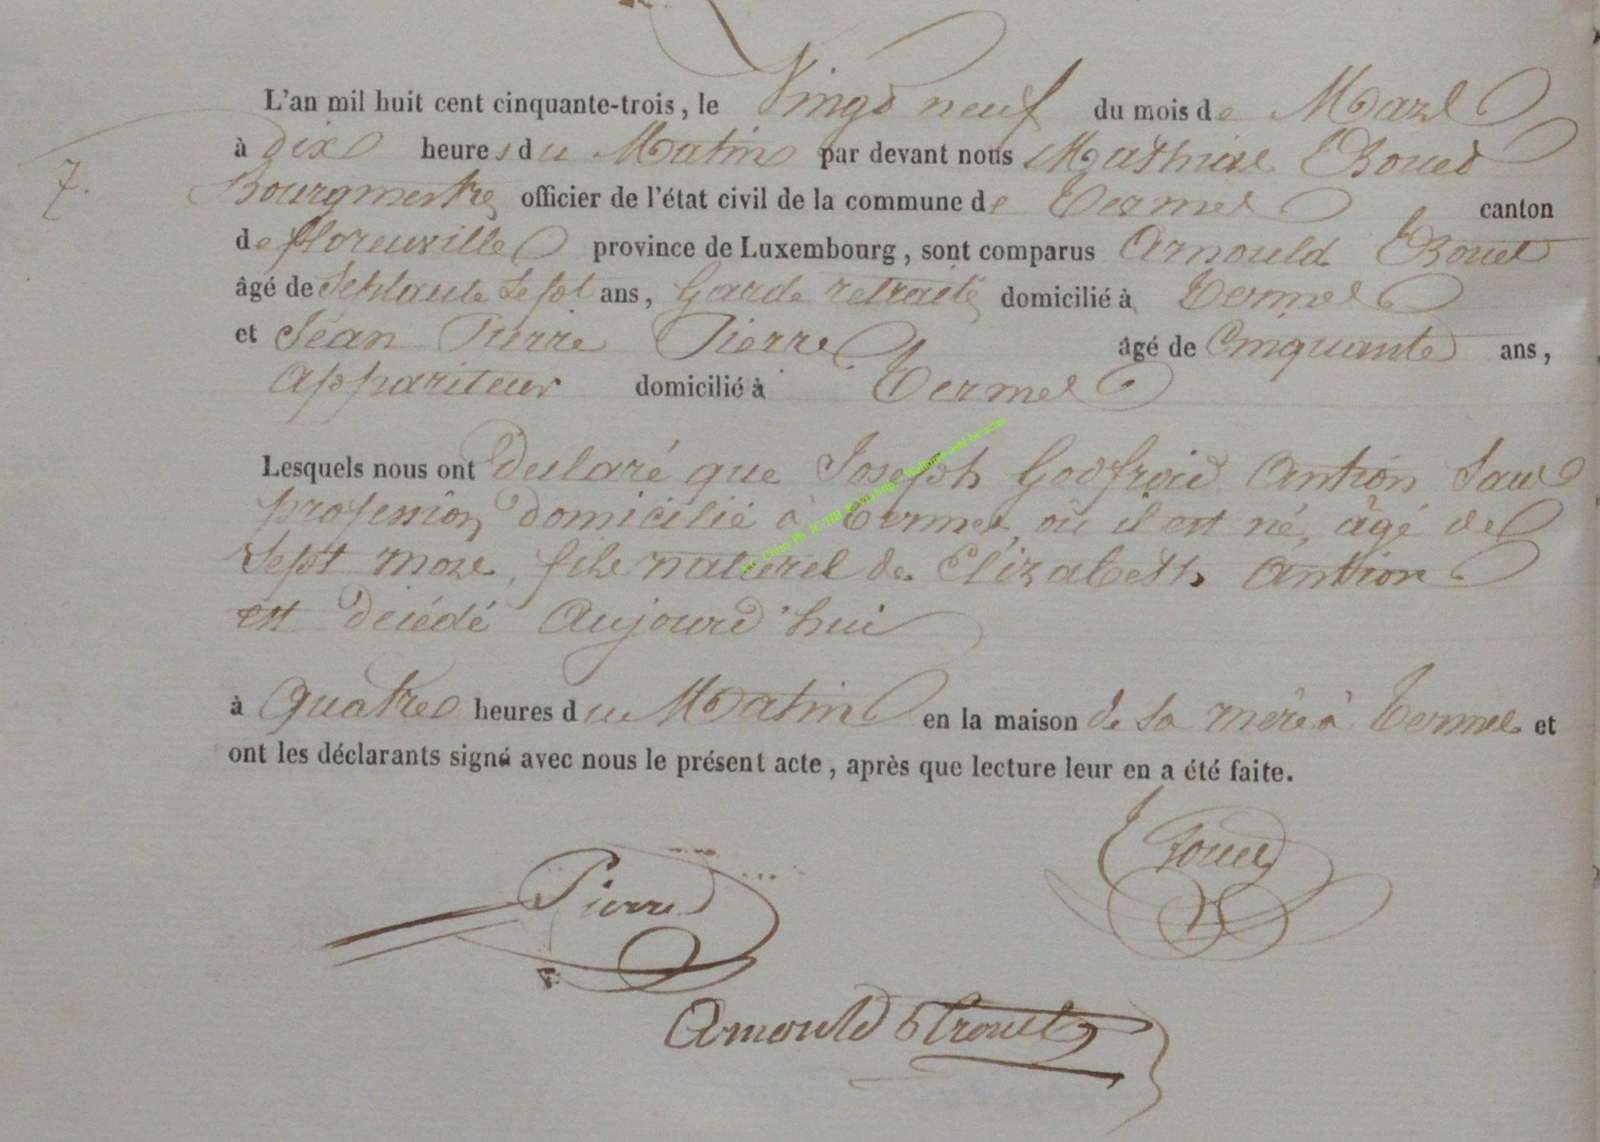 L'an mil huit cent cinquante-trois, le Vingt neuf du mois de Mars
à dix heures du Matin par devant nous Mathias
7.
Bourgmestre officier de l'état civil de la commune de Termes canton
de florenville province de Luxembourg, sont comparus Arnould
âgé de Septante Sept ans, Garde retraité domicilié à Termes
et Jean Pierre Pierre âgé de Cinquante ans,
Appariteur domicilié à Termes
Lesquels nous ont declaré que Joseph Godfroid Antion Sans
profession domicilié à Termes, où il est né, âgé de
Sept mois, fils naturel de Elizabeth Antion
est décédé Aujourd'hui
à Quatre heures du Matin en la maison de sa mère à Termes et
ont les déclarants signé avec nous le présent acte, après que lecture leur en a été faite.
Pierre
Arnould